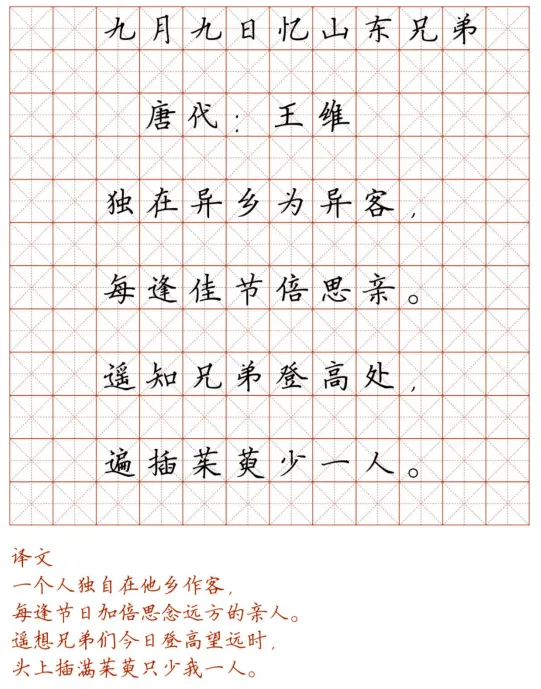 九月九日忆山东兄弟
唐代：王维
独在异乡为异客，
每逢佳节倍思亲。
遥知兄弟登高处，
遍插茱萸少一人。
译文
一个人独自在他乡作客，
每逢节日加倍思念远方的亲人。
遥想兄弟们今日登高望远时，
头上插满茱萸只少我一人。